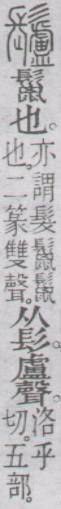 䰕鬣也。亦謂髮鬣鬣也。二篆雙聲。从髟盧聲。洛乎切。五部。